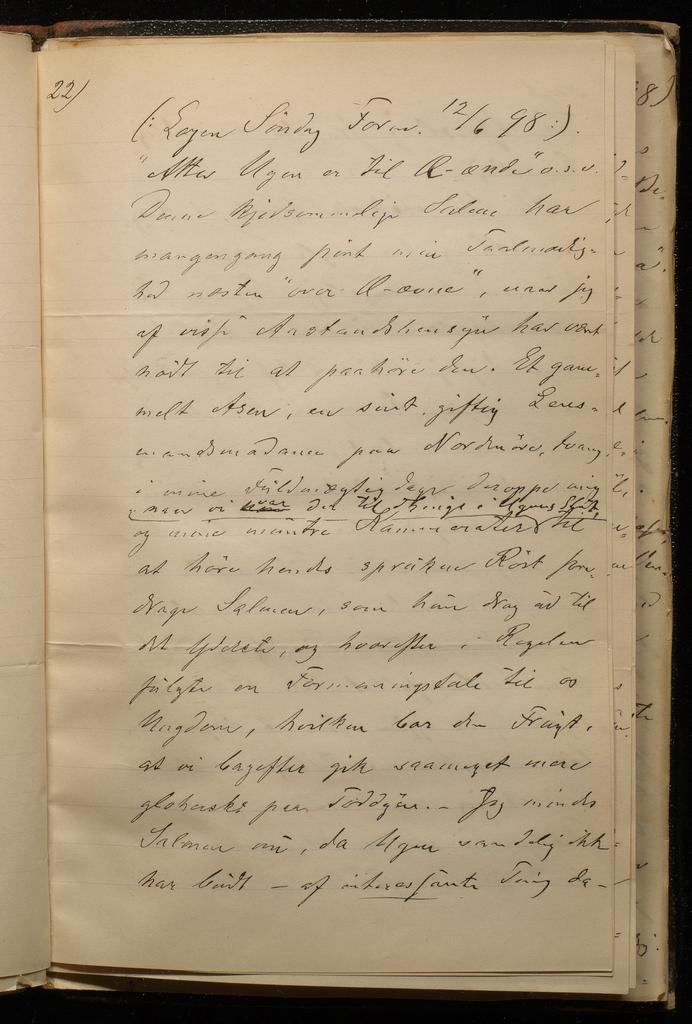 22)
(: Logen Söndag Form. 12/6 98 :).
"Atter Ugen er til Æ-ænde" o.s.v.
Denne kjedsommelige Salme har
mangengang pint min Taalmodig-
hed næsten "over Æ-ævne", naar jeg
af visse Anstandshensyn har vært
nödt til at paahöre den. Et gam-
melt Asen, en sint, giftig Lens-
mandsmadame paa Nordmöre, tvang
i mine Fuldmægtigdage deroppe mig
naar vi var der til Things i Ugens Slut,
og mine muntre Kammerater til
at höre hendes sprukne Röst fore-
drage Salmen, som hun drog ud til
det yderste, og hvorefter i Regelen
fulgte en Formaningstale til os
Ungdom, hvilken bar den Frugt,
at vi bagefter gik saameget mere
gloheiske paa Toddyen. – Jeg mindes
Salmen nu, da Ugen sandelig ikke
har budt – af interessante Ting da –
8)